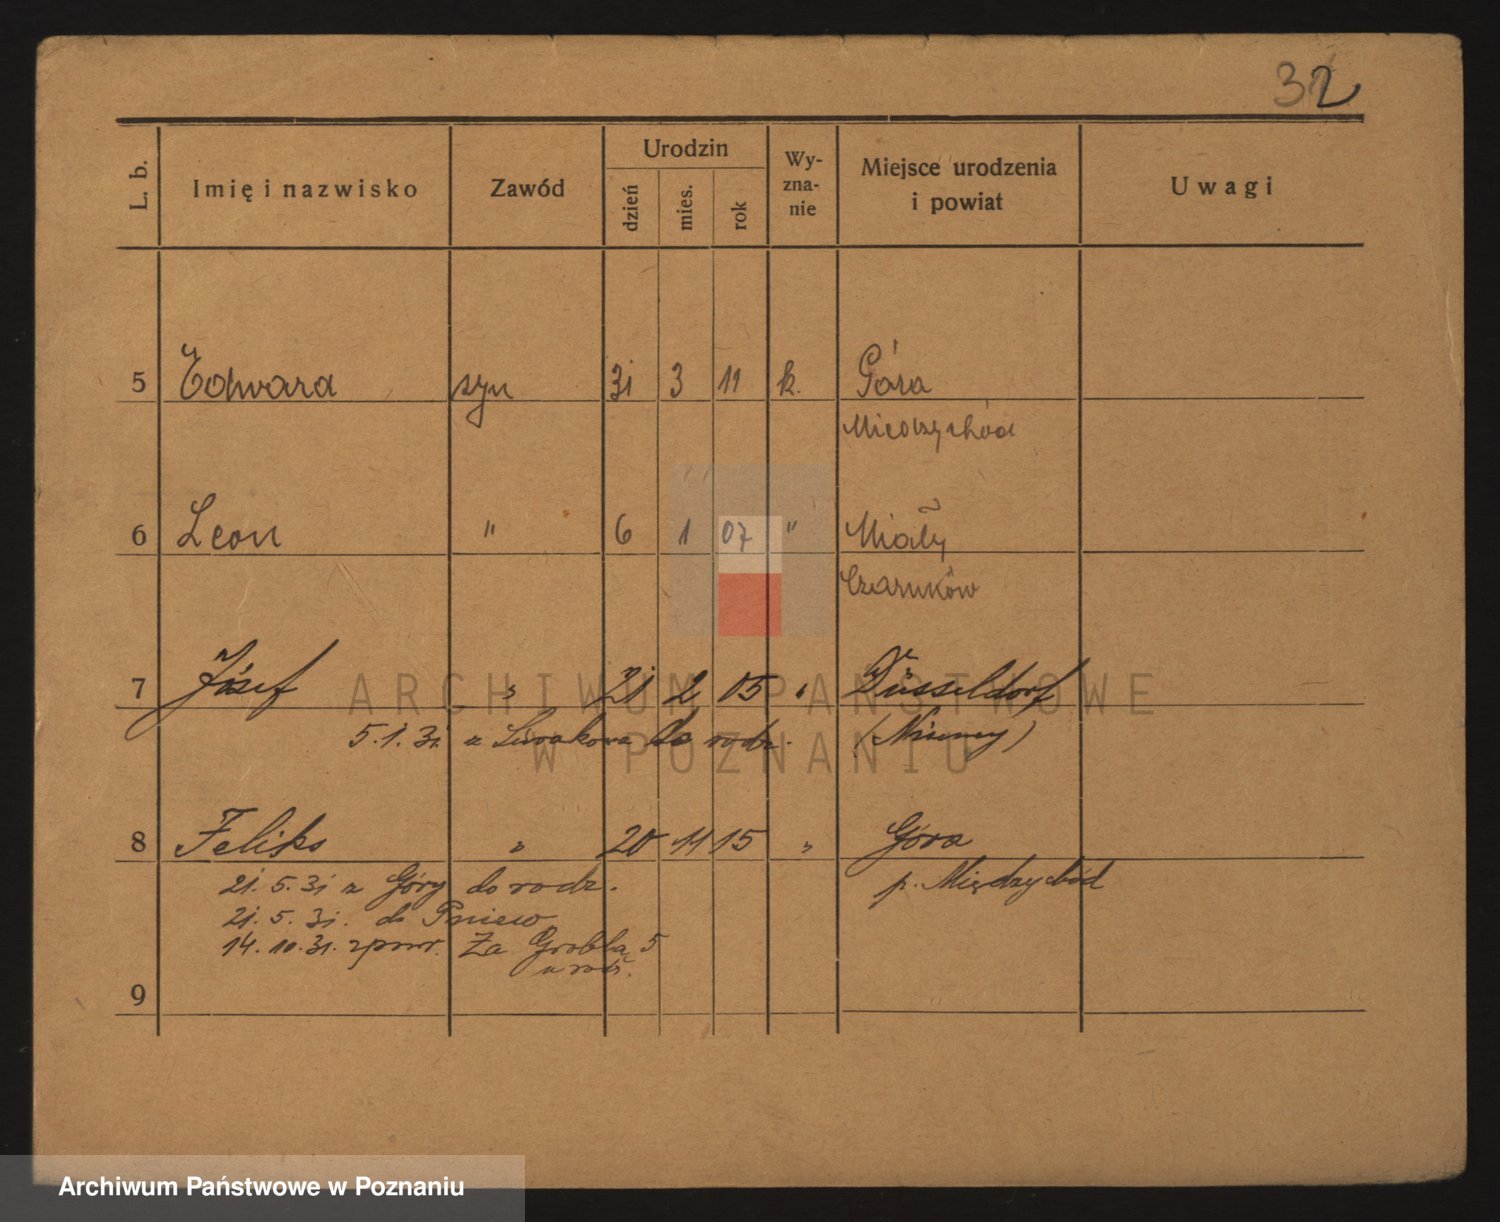 32
L. b.
Imię i nazwisko
Zawód
Urodzin
dzień
mies.
rok
Wy-
zna-
nie
Miejsce urodzenia
i powiat
Uwagi
5 Edward syn 31 3 11 k. Góra
Międzychód
6 Leon " 6 1 07 " Miały
Czarnków
7 Józef " 21 2 05 " Düsseldorf
5.1.31 z do rodz. (Niemcy)
8 Feliks " 20 11 15 " Góra
21.5.31 z Góry do rodz. p. Międzychód
21.5.31. do Pniew
14.10.31. zpowr. Za Groblą 5
u rodz.
9
ARCHIWUM PAŃSTWOWE
W POZNANIU
Archiwum Państwowe w Poznaniu